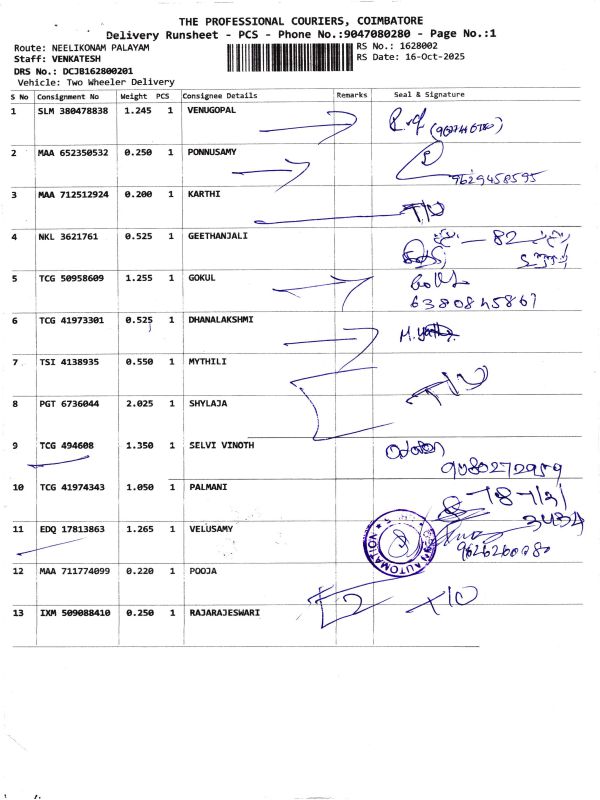 THE PROFESSIONAL COURIERS, COIMBATORE
Delivery Runsheet - PCS - Phone No.:9047080280 - Page No.:1
Route: NEELIKONAM PALAYAM
RS No.: 1628002
Staff: VENKATESH
RS Date: 16-Oct-2025
DRS No.: DCJB162800201
Vehicle: Two Wheeler Delivery
S No Consignment No Weight PCS Consignee Details Remarks Seal & Signature
1 SLM 380478838 1.245 1 VENUGOPAL
2 MAA 652350532 0.250 1 PONNUSAMY
9629458595
3 MAA 712512924 0.200 1 KARTHI
4 NKL 3621761 0.525 1 GEETHANJALI
82
5 TCG 50958609 1.255 1 GOKUL
6380845867
6 TCG 41973301 0.525 1 DHANALAKSHMI
7 TSI 4138935 0.550 1 MYTHILI
8 PGT 6736044 2.025 1 SHYLAJA
9 TCG 494608 1.350 1 SELVI VINOTH
9080272959
10 TCG 41974343 1.050 1 PALMANI
3434
11 EDQ 17813863 1.265 1 VELUSAMY
12 MAA 711774099 0.220 1 POOJA
13 IXM 509088410 0.250 1 RAJARAJESWARI